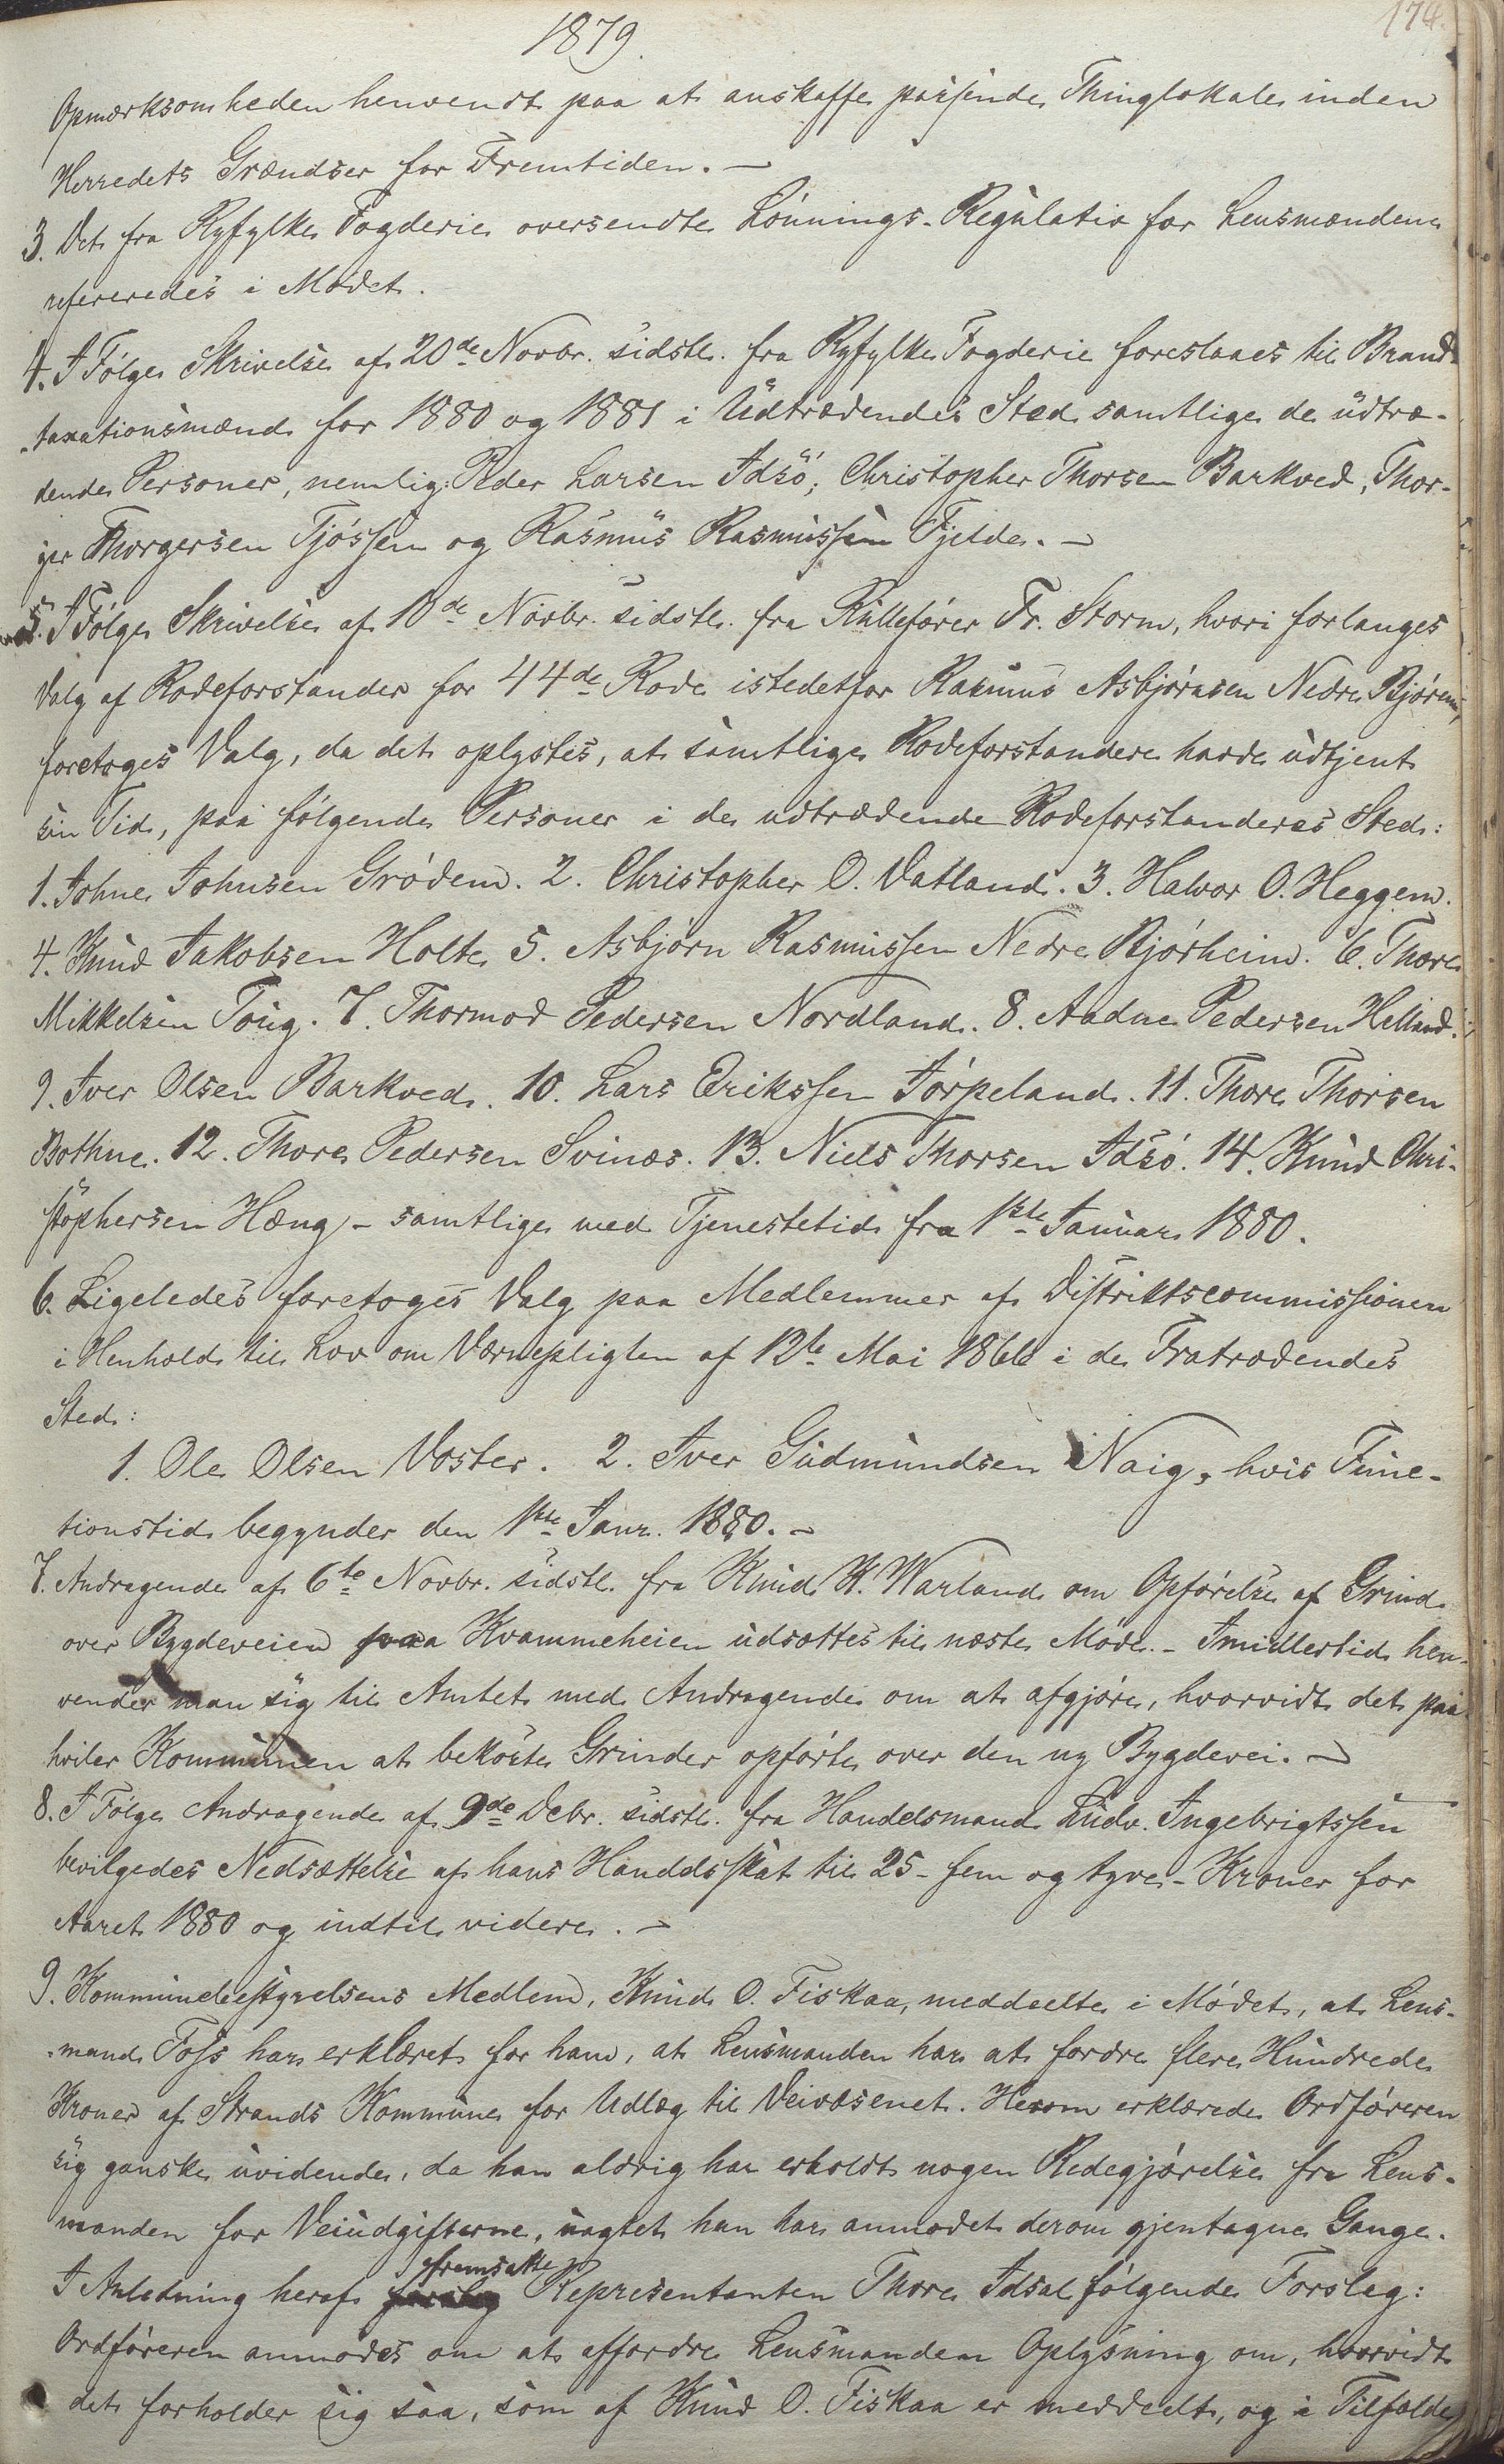 1879.
174.
Opmærksomheden henvendt paa at anskaffe passende Thinglokale inden
Herredets Grændser for Fremtiden. —
3. Det fra Ryfylke Fogderie oversendte Lønnings-Regulativ for Lensmændene
refereredes i Mødet.
4. I Følge Skrivelse af 20de Novbr. sidstl. fra Ryfylke Fogderie foreslaaes til Brand-
taxationsmænd for 1880 og 1881 i Udtrædendes Sted samtlige de udtræ-
dende Personer, nemlig: Peder Larsen Idsø, Christopher Thorsen Barkved, Thor-
ger Thorgersen Tjøssem og Rasmus Rasmussen Fjelde. —
5. I Følge Skrivelse af 18de Novbr. sidstl. fra Rullefører Fr. Storm, hvori forlanges
Valg af Rodeforstander for 44de Rode istedetfor Rasmus Asbjørnsen Nedre Bjøreim,
foretoges Valg, da det oplystes, at samtlige Rodeforstandere havde udtjent
sin Tid, paa følgende Personer i de udtrædende Rodeforstanderes Sted:
1. Johne Johnsen Grødem. 2. Christopher O. Vatland. 3. Halvor O. Heggem.
4. Knud Jakobsen Holte 5. Asbjørn Rasmussen Nedre Bjørheim. 6. Thore
Mikkelsen Toug. 7. Thormod Pedersen Nordland. 8. Aadne Pedersen Helland.
9. Iver Olsen Barkved. 10. Lars Erikssen Jørpeland. 11. Thore Thorsen
Bothne. 12. Thore Pedersen Svinæs. 13. Niels Thorsen Idsø. 14. Knud Chri-
stophersen Hæng - samtlige med Tjenestetid fra 1ste Januar 1880.
6. Ligeledes foretoges Valg paa Medlemmer af Distriktscommissionen
i Henhold til Lov om Værnepligten af 12te Mai 1866 i de Fratrædendes
Sted:
1. Ole Olsen Voster. 2. Iver Gudmundsen Naig, hvis Func-
tionstid begynder den 1ste Janr. 1880. —
7. Andragende af 6te Novbr. sidstl. fra Knud K. Warland om Opførelse af Grind
over Bygdeveien paa Kvammeheien udsættes til næste Møde. - Imidlertid hen-
vender man sig til Amtet med Andragende om at afgjøre, hvorvidt det paa-
hviler Kommunen at bekoste Grinder opførte over den ny Bygdevei. —
8. I Følge Andragende af 9de Debr. sidstl. fra Handelsmand Ludv. Ingebrigtssen
bevilgedes Nedsættelse af hans Handelsskat til 25 - fem og tyve - Kroner for
Aaret 1880 og indtil videre. —
9. Kommunebestyrelsens Medlem, Knud O. Fiskaa, meddeelte i Mødet, at Lens-
mand Foss har erklæret for ham, at Lensmanden har at fordre flere Hundrede
Kroner af Strands Kommune for Udlæg til Veivæsenet. Herom erklærede Ordføreren
sig ganske uvidende, da han aldrig har erholdt nogen Redegjørelse fra Lens-
manden for Veiudgifterne, uagtet han har anmodet derom gjentagne Gange.
I Anledning heraf fremsatte Repræsentanten Thore Idsal følgende Forslag:
Ordføreren anmodes om at affordre Lensmanden Oplysning om, hvorvidt
det forholder sig saa, som af Knud O. Fiskaa er meddeelt, og i Tilfælde